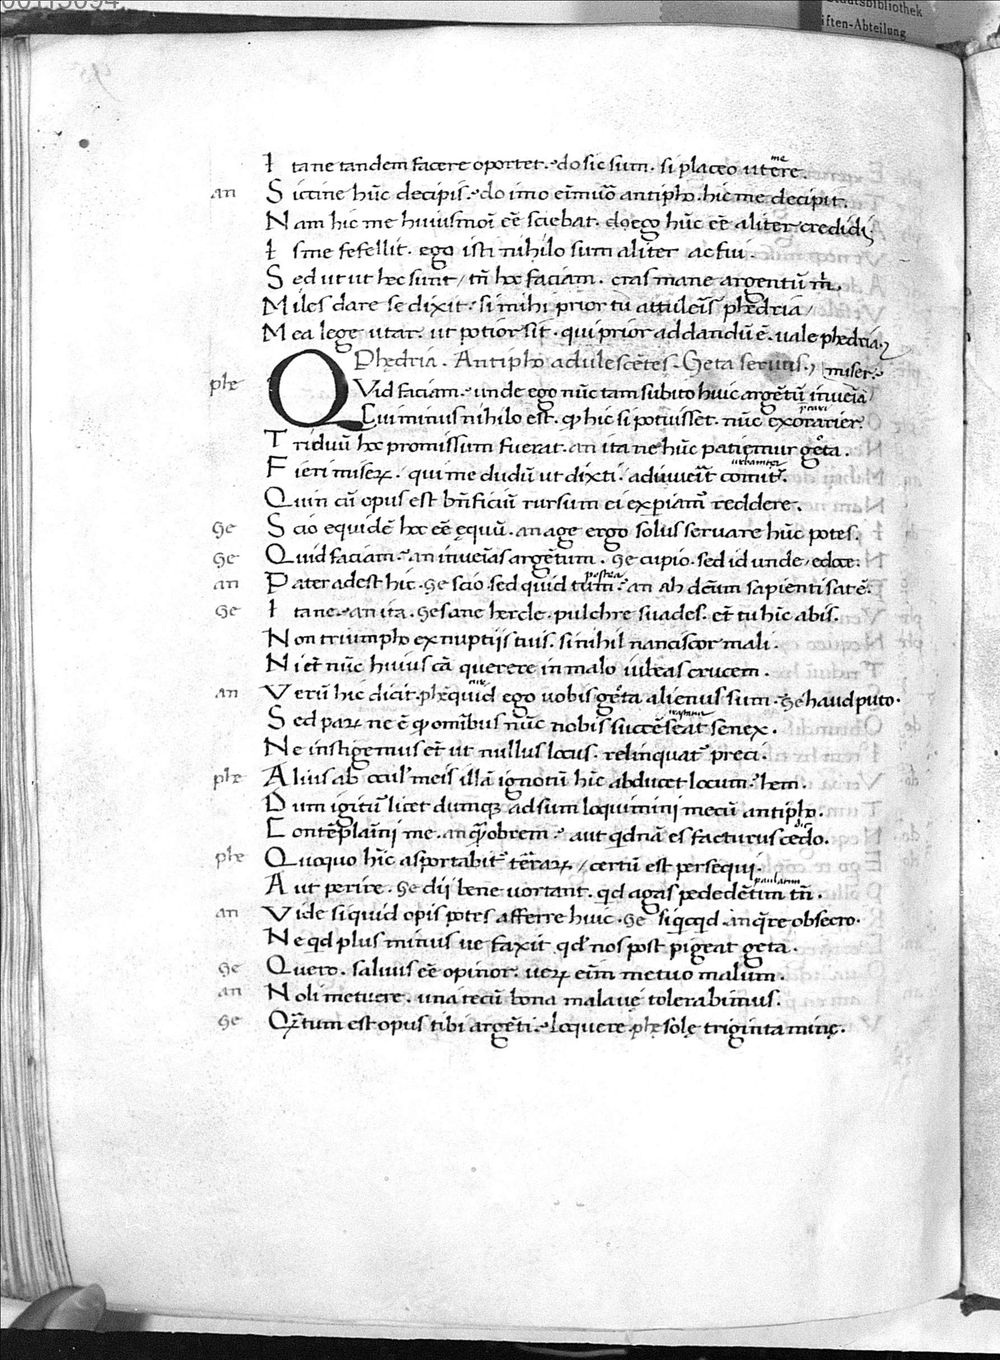 00113094
Staatsbibliothek
iften-Abteilung
me
I tane tandem facere oportet. do sic sum. si placeo utere.
an S iccine hūc decipis. do imo eīmuō antipho. hic me decipit.
N am hic me huiusmoī eē sciebat. do ego hūc eē aliter credidi
I ste fefellit. ego isti nihilo sum aliter ac fui.
S ed ut ut hec sunt / tn̄ hoc faciam. cras mane argentū m̄.
M iles dare se dixit. si mihi prior tu attuleīs phędria /
M ea lege utar. ut potior sit. qui prior ad dandū ē. uale phedria.
Phędria. Antipho adulescētes. Geta seruus. miser.
phe QVid faciam. unde ego nūc tam subito huic argētū inueīā
Cui minus nihilo est. qđ hic si potuisset. nūc exorarier.
T riduū hoc promissum fuerat. an ita ne hūc patiemur geta.
F ieri miserꝝ. qui me dudū ut dixti. adiuueīt comit.
Q uin cū opus est bn̄ficiū rursum ei experiam̄ reddere.
Ge S cio equidē hoc eē equū. an age ergo solus seruare hūc potes.
Ge Q uid faciam. an inueīas argētum. Ge cupio. sed id unde, edoce.
postea
an P ater adest hic. Ge scio sed quid tum. an ah dcūm sapienti sat ē.
Ge I tane. an ita. Ge sane hercle. pulchre suades. et tu hīc abis.
N on triumpho ex nuptijs tuis. si nihil nanciscor mali.
N i et nūc huius cā querere in malo iubeas crucem.
an V erū hic dicit. phe quid ego uobis geta alienus sum. Ge haud puto.
S ed parꝝ ne ē qđ omībus nūc nobis succēseat senex.
N e instigemus et ut nullus locus. relinquat preci.
phe A lius ab ocul meis illā ignotū hīc abducet locum. hem.
D um igitur licet dumqꝫ adsum loquimini mecū antipho.
C ontēplaīnj me. an quobrem. aut qdnā es facturus cedo.
phe Q uoquo hīc asportabit terrarꝝ / certū est persequi.
paulatim
A ut perire. Ge dij bene uortant. qd agas pedetētim tn̄.
an V ide siquid opis potes afferre huic. Ge siqcqd. an qre obsecro.
N e qd plus minus ue faxit qđ nos post pigeat geta.
Ge Q uero. saluus eē opinor. uerꝝ eīm metuo malum.
an N oli metuere. una tecū bona mala ue tolerabimus.
Ge Q tum est opus tibi argēti. loquere. phę solę triginta minę.